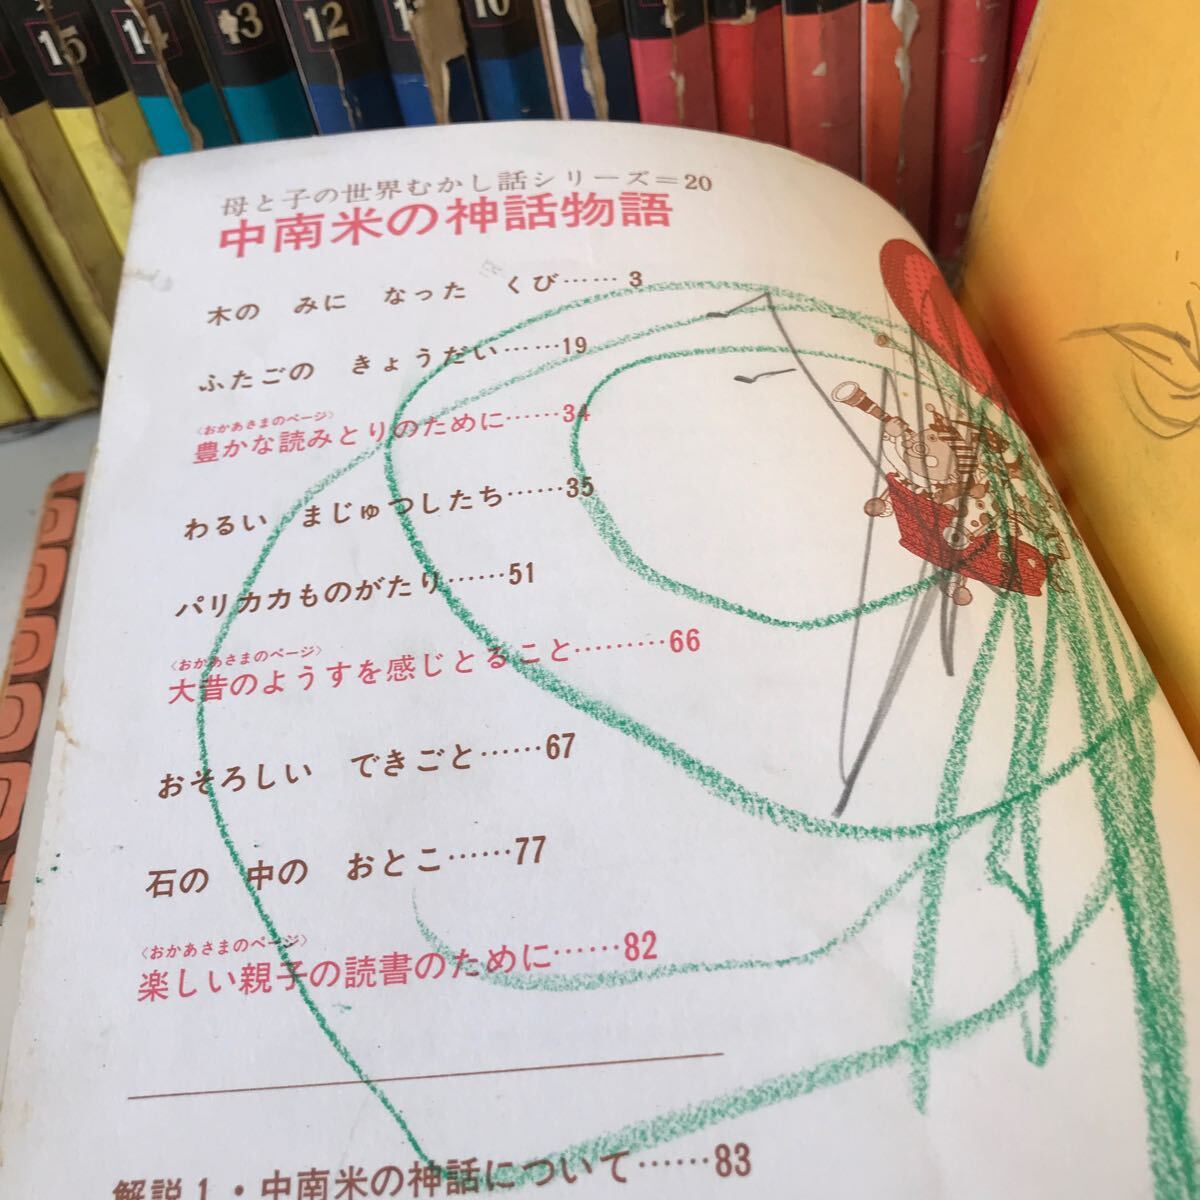 15
14
13
12
10
母と子の世界むかし話シリーズ=20
中南米の神話物語
木の　みに　なった　くび……3
ふたごの　きょうだい……19
〈おかあさまのページ〉
豊かな読みとりのために……34
わるい　まじゅつしたち……35
パリカカものがたり……51
〈おかあさまのページ〉
大昔のようすを感じとること………66
おそろしい　できごと……67
石の　中の　おとこ……77
〈おかあさまのページ〉
楽しい親子の読書のために……82
解説1・中南米の神話について……83